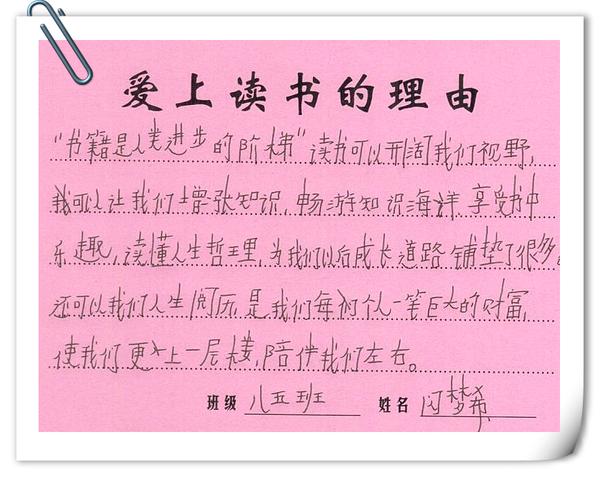 爱上读书的理由
"书籍是人类进步的阶梯"读书可以开阔我们视野,
可以让我们增张知识,畅游知识海洋享受书中
乐趣,读懂人生哲理,为我们以后成长道路铺垫了很多。
还可以我们人生阅历,是我们每个人一笔巨大的财富,
使我们更上一层楼,陪伴我们左右。
班级 八五班 姓名 闪梦希